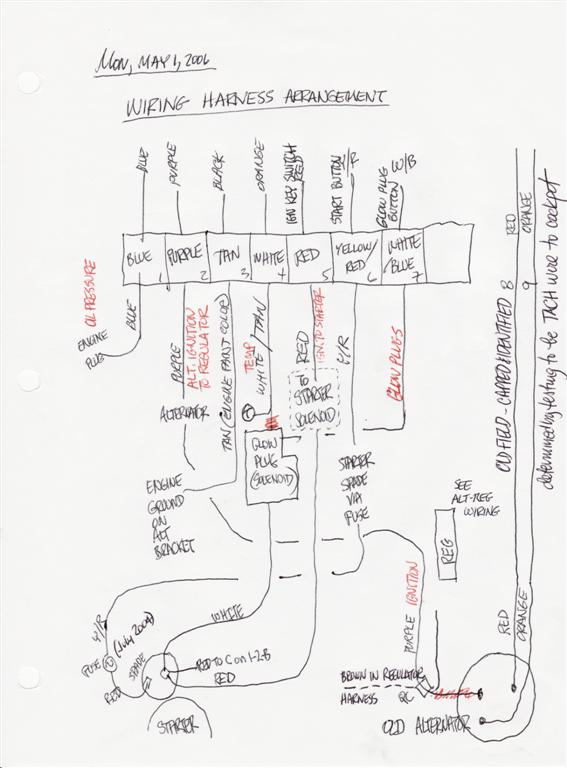 MON, MAY 1, 2006
WIRING HARNESS ARRANGEMENT
BLUE
PURPLE
BLACK
ORANGE
IGN KEY SWITCH
RED
START BUTTON
Y/R
GLOW PLUG
BUTTON
W/B
BLUE
1
PURPLE
2
TAN
3
WHITE
4
RED
5
YELLOW/
RED
6
WHITE
/BLUE
7
OIL PRESSURE
ENGINE
PLUG
BLUE
PURPLE
ALT. IGNITION
TO REGULATOR
ALTERNATOR
TAN (ENGINE PAINT COLOR)
TEMP
WHITE/TAN
RED
IGN. TO STARTER
Y/R
GLOW PLUGS
TO
STARTER
SOLENOID
GLOW
PLUG
(SOLENOID)
ENGINE
GROUND
ON
ALT
BRACKET
STARTER
SPADE
VIA
FUSE
SEE
ALT-REG
WIRING
REG
OLD FIELD - CAPPED & IDENTIFIED
8
9
RED
ORANGE
determined by testing to be the TACH wire to cockpit
RED
ORANGE
WHITE
Y/R
FUSE
(July 2004)
RED
SPADE
RED TO Con 1-2-B
RED
STARTER
PURPLE IGNITION
BROWN IN REGULATOR
HARNESS
QC
OLD ALTERNATOR